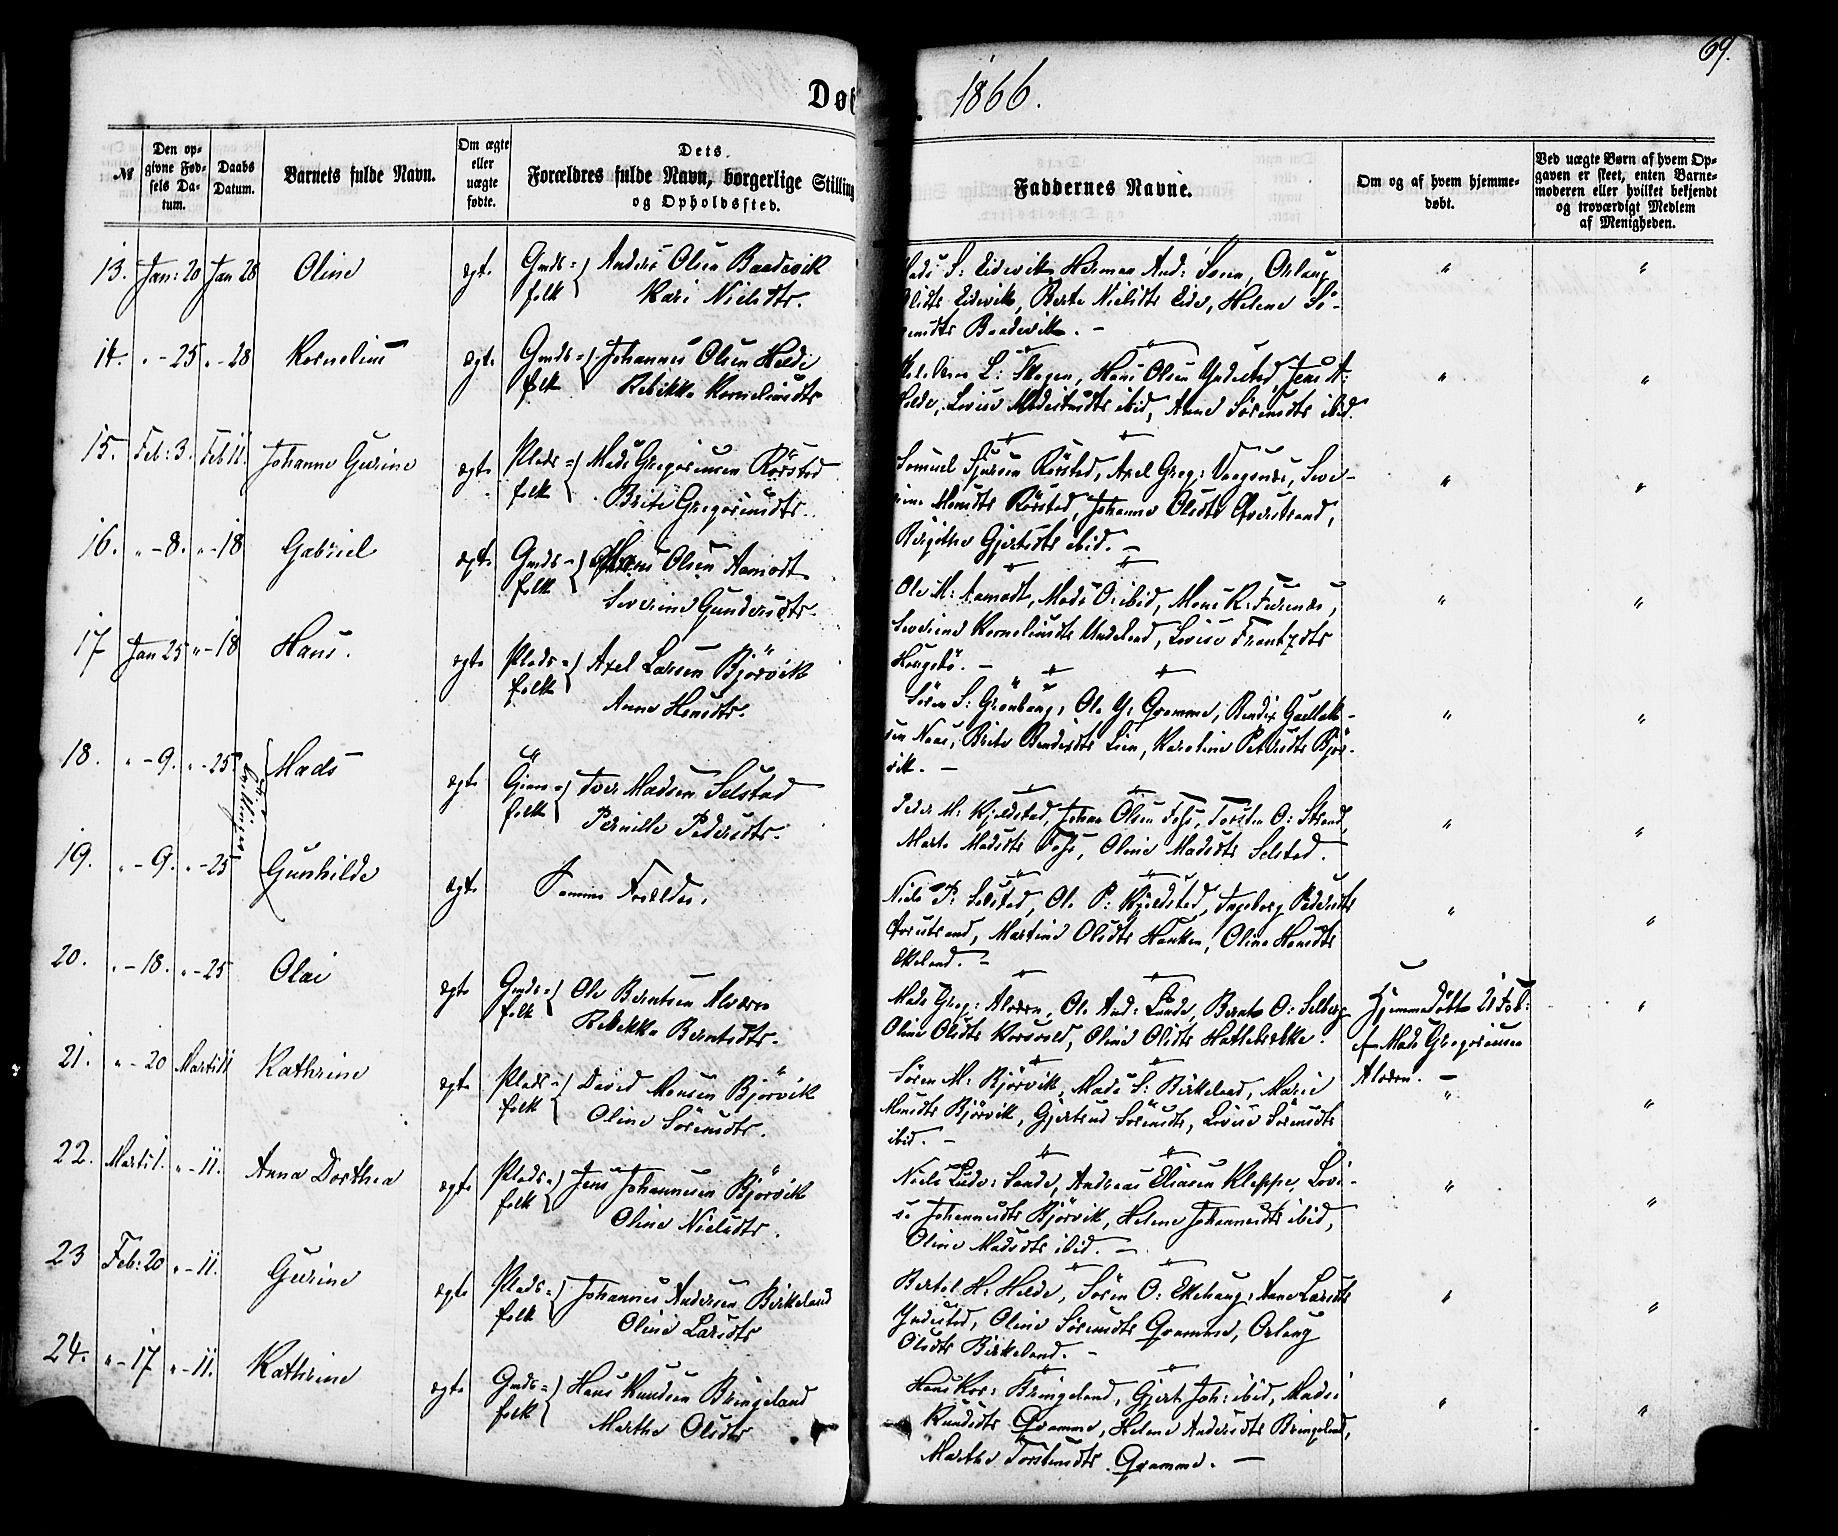 69.
Døb
1866.
№
Den op-
givne Fød-
sels Da-
tum.
Daabs
Datum.
Barnets fulde Navn.
Om ægte
eller
uægte
fødte.
Dets
Forældres fulde Navn, borgerlige Stilling
og Opholdssted.
Faddernes Navne.
Om og af hvem hjemme-
døbt.
Ved uægte Børn af hvem Op-
gaven er skeet, enten Barne-
moderen eller hvilket bekjendt
og troværdigt Medlem
af Menigheden.
13. Jan: 20 Jan 28 Oline ægte Gmds= Anders Olsen Baadsvik
folk Kari Nielsdtr.
Mads S: Eidsvik, Herman And: Steen, Orlaug
Olsdtr Eidsvik, Berte Nielsdtr Eide, Helene Sö-
rensdtr Baadsvik. –
14. " - 25 " - 28 Kornelius ægte Gmds= Johannes Olsen Helde
folk Rebikka Korneliusdtr
L: Skogen, Hans Olsen Yndestad, Jens A:
Helde, Lovise Modestusdtr ibid, Anne Sörensdtr ibid.
15. Feb: 3. Feb 11. Johanne Gurine ægte Plads= Mads Gregoriussen Rörstad
folk Brite Gregoriusdtr.
Samuel Sjursen Rörstad, Axel Greg: Vaagenes, Seve-
rine Monsdtr Rörstad, Johanne Olsdtr Qverstrand,
Birgithe Gjertsdtr ibid. –
16. " - 8. " - 18 Gabriel ægte Gmds= Hans Olsen Aamodt
folk Severine Gundersdtr.
Ole M: Aamodt, Mads O: ibid, Mons R: Furenes,
Severine Korneliusdtr Undeland, Lovise Frantzdtr
Haugsbö. –
17 Jan 25 " - 18 Hans. ægte Plads= Axel Larsen Björvik
folk Anne Hansdtr.
Sören S: Grönhaug, Ole G: Qvamme, Bendix Gullak-
sen Naes, Brite Bendixdtr Lien, Karoline Petersdtr Björ-
vik. –
18. " - 9. " - 25. Mads ægte folk Iver Madsen Selstad
Pernille Pedersdtr.
Tvillinger
Peder M: Kjelstad, Johan Olsen Fos, Torsten O: Strand,
Marte Madsdtr Fos, Oline Madsdtr Selstad.
19. " - 9. " - 25 Gunhilde ægte Samme Forældre.
Niels P: Selstad, Ole P: Kjelstad, Ingeborg Pedersdtr
Martine Olsdtr Hanken, Oline Hansdtr
Ekeland. –
20. " - 18. " - 25 Olai ægte Gmds= Ole Berntsen Alværen
folk Rebekka Berntsdtr.
Mads Greg: Alværen, Ole And: Lunde, Bernt O: Solberg
Oline Olsdtr Korsvold, Oline Olsdtr Hatlebrekke.
Hjemmedöbt 21 Feb:
af Mads Gregoriussen
Alværen. –
21. " - 20 Marts 11 Kathrine ægte Plads= David Monsen Björvik
folk Oline Sörensdtr.
Sören M: Björvik, Mads S: Birkeland, Marie
Monsdtr Björvik, Gjertrud Sörensdtr, Lovise Sörensdtr
ibid. –
22. Marts 1. " - 11. Anna Dorthea ægte Plads= Jens Johannesen Björvik
folk Oline Nielsdtr.
Niels Ludv: Sande, Andreas Eliasen Kleppe, Lovi-
se Johannesdtr Björvik, Helene Johannesdtr ibid,
Oline Madsdtr ibid. –
23 Feb: 20 " - 11. Gurine ægte Plads= Johannes Andersen Birkeland
folk Oline Larsdtr
Bertel H: Helde, Sören O: Ekehaug, Anne Larsdtr
Yndestad, Oline Sörensdtr Qvamme, Orlaug
Olsdtr Birkeland. –
24. " - 17 " - 11. Kathrine ægte Gmds= Hans Knudsen Bringeland
folk Marthe Olsdtr
Hans Kor: Bringeland, Gjert Joh: ibid, Madsi
Knudsdtr Qvamme, Helene Andersdtr Bringeland,
Marthe Torstensdtr Qvamme. –